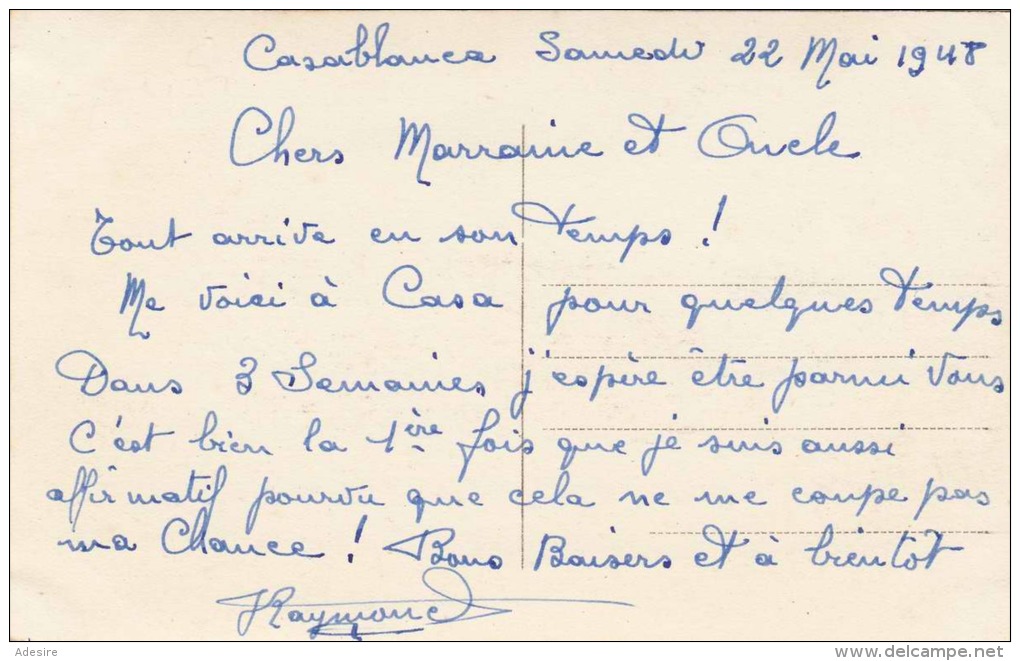 Casablanca Samedi 22 Mai 1948
Chers Marraine et Oncle
Tout arrive en son temps !
Me voici à Casa pour quelques temps
Dans 3 Semaines, j'espère être parmi Vous
C'est bien la 1ère fois que je suis aussi
affirmatif pourvu que cela ne me coupe pas
ma Chance ! Bons Baisers et à bientôt
Raymond
Adesire
www.delcampe.net